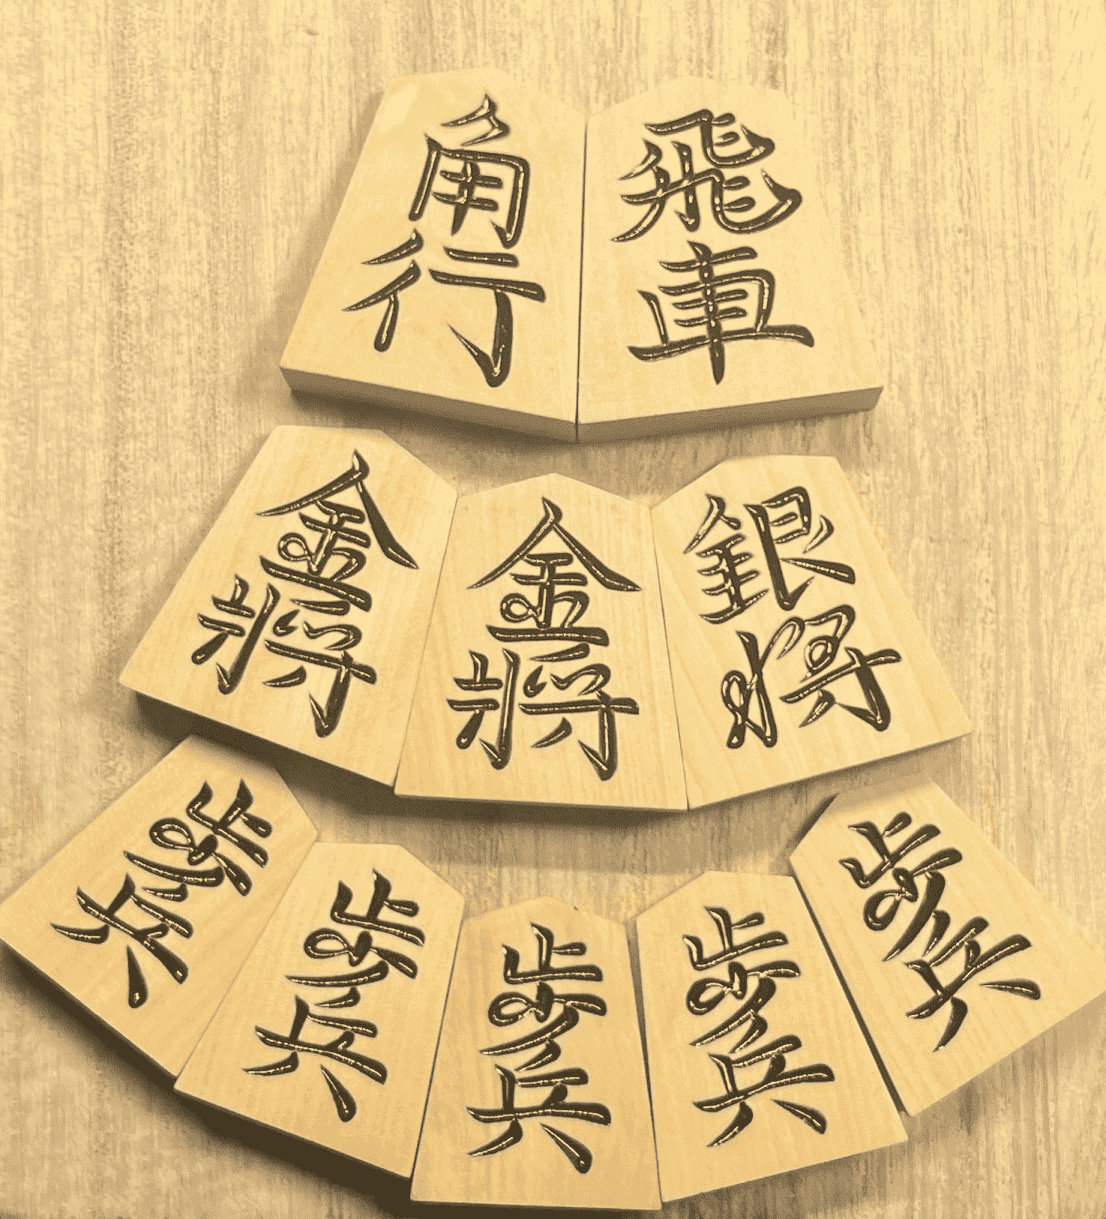 角行
飛車
金将
金将
銀将
歩兵
歩兵
歩兵
歩兵
歩兵